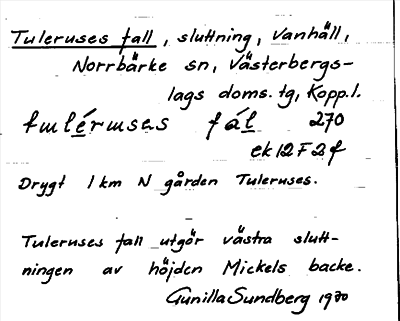 Tuleruses fall, sluttning, Vanhäll,
Norrbärke sn, Västerbergs-
lags doms. tg, Kopp.l.
270
ek 12 F 2 f
Drygt 1 km N gården Tuleruses.
Tuleruses fall utgör västra slutt-
ningen av höjden Mickels backe.
Gunilla Sundberg 1970